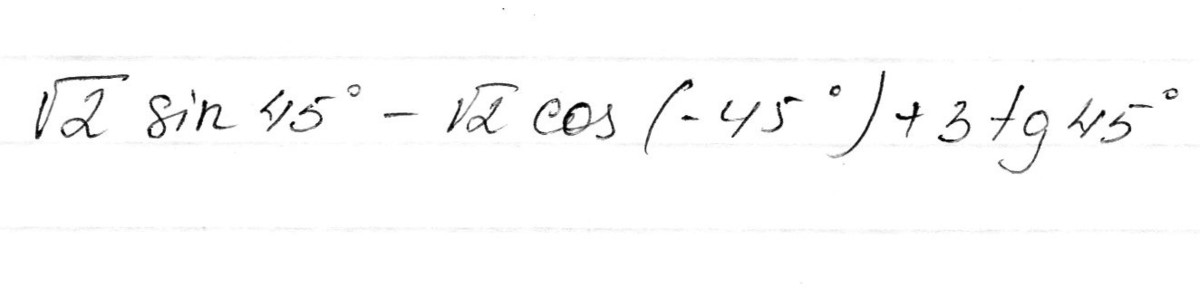 √2 sin 45° - √2 cos (-45°) + 3 tg 45°